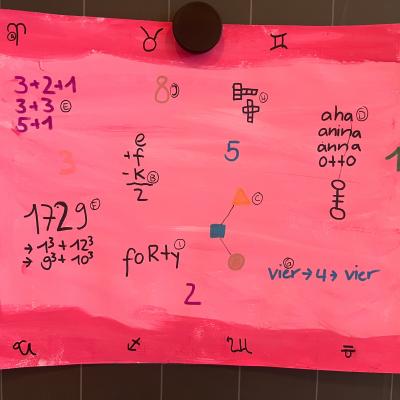 ♈ ♉ ♊
3+2+1
3+3 Ⓔ
5+1
8 Ⓙ
aha Ⓓ
anina
anna
otto
e
+f
-k Ⓑ
2
5
1
3
Ⓒ
1729 Ⓕ
→ 1³ + 12³
→ 9³ + 10³
foRty Ⓘ
Ⓖ
vier→4→vier
2
♐ ♎